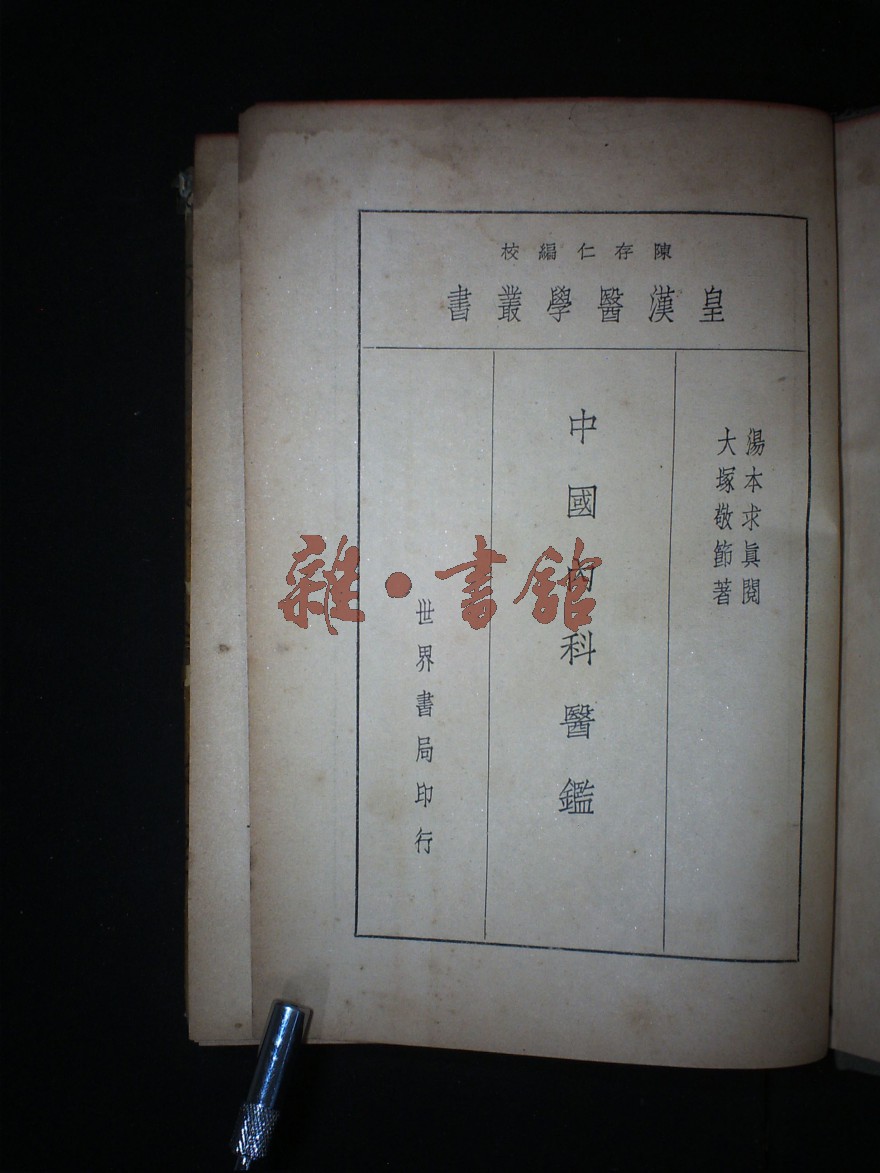 陳存仁編校
皇漢醫學叢書
湯本求眞閱
大塚敬節著
中國內科醫鑑
世界書局印行
雜·書館